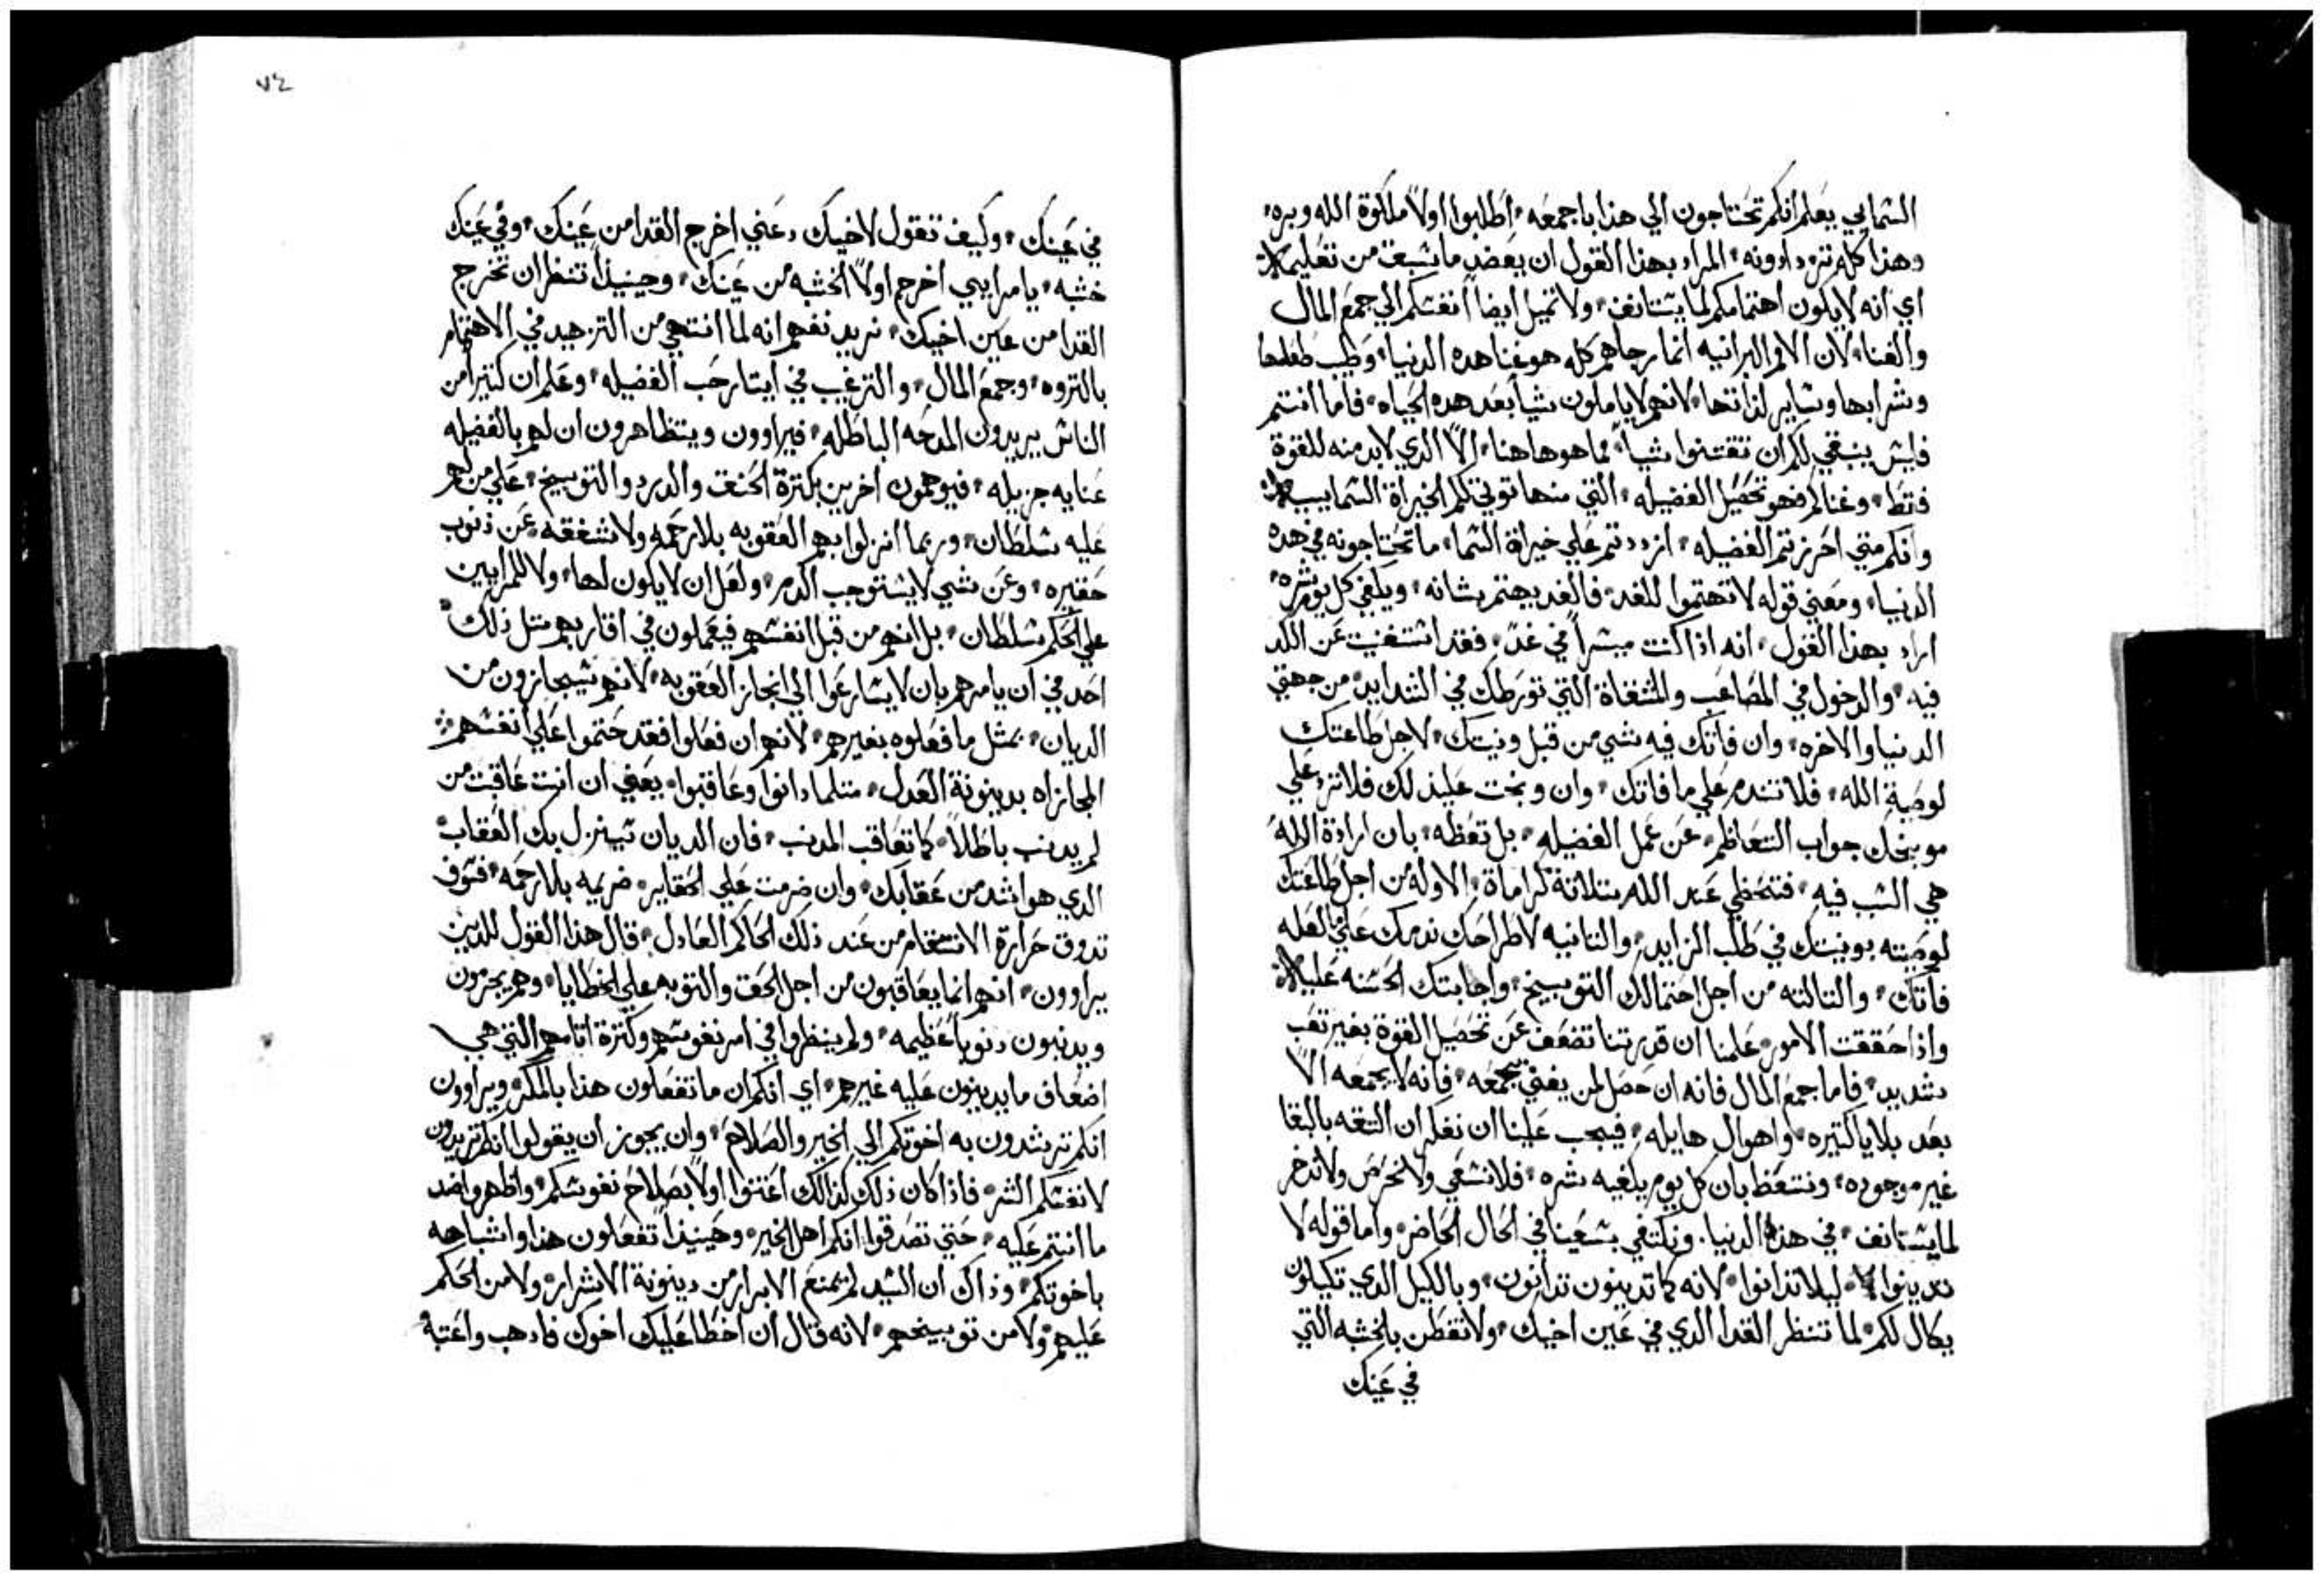 السمايي يعلم انكم تحتاجون الي هذا باجمعه، اطلبوا اولاً ملكوة الله وبره،
وهذا كله تزدادونه، المراد بهذا القول ان بعضد ماسبق من تعليمه،
اي انه لا يكون اهتمامكم لما يستانف، ولا تميل ايضاً انفسكم الي جمع المال
والغنا، لان الامم البرانيه انما رجاهم كله هو غنا هده الدنيا، وطيب طعامها
وشرابها وساير لذاتها، لانهم لا ياملون شيأ بعد هده الحياه، فاما انتم
فليس ينبغي لكم ان تقتنوا شيا، مما هو هاهنا، الاّ الدي لا بد منه للقوة
فقط، وغناكم فهو تحصيل الفضيله، التي منها توتي لكم الخيراة السماييه،
وانكم متي احرزتم الفضيله، ازددتم علي خيراة السما، ما تحتاجونه في هده
الدنيا، ومعني قوله لا تهتموا للغد، فالغد يهتم بشانه، ويكفي كل يوم شره،
اراد بهذا القول، انه اذا كنت ميسراً في غدٍ، فقد استغنيت عن الكد
فيه، والدخول في المصاعب والمشقاة التي تورطك في الشدايد، من جهتي
الدنيا والاخره، وان فاتك فيه شي من قبل ونيتك، لاجل طاعتك
لوصية الله، فلا تندم علي ما فاتك، وان وبخت عليذلك فلا ترد علي
موبخك جواب التعاظم، عن عمل الفضيله، بل تعظه، بان ارادة الله
هي السبب فيه، فتحظي عند الله بتلاتة كراماة، الاوله من اجل طاعتك
لوصيته بونيتك في طلب الزايد، والتانيه لاطراحك ندمك علي الغله
فاتك، والتالته من اجل احتمالك التوبيخ، واجابتك الحسنه عليه،
واذا حققت الامور، علمنا ان قدرتنا تضعف عن تحصيل القوة بغير تعب
شديد، فاما جمع المال فانه ان حصل لمن يعتني بجمعه، فانه لا يجمعه الاّ
بعد بلايا كتيره، واهوال هايله، فيجب علينا ان نعلم ان التقه بالبقا
غير موجوده، ونتعظ بان كل يوم يكفيه شره، فلا نشقي ولا نحرص ولا ندخر
لما يستانف، في هذه الدنيا، ونكتفي بسعينا في الحال الحاضر، واما قوله لا
تدينوا، ليلا تدانوا، لانه كما تدينون تدانون، وبالكيل الدي تكيلون
يكال لكم، لما تنظر القدا الدي في عين اخيك، ولا تفطن بالخشبه التي
في عينك
٧٤
في عينك، وكيف تقول لاخيك دعني اخرج القدا من عينك، وفي عينك
خشبه، يا مرايي اخرج اولاً الخشبه من عينك، وحينيذاً تنظر ان تخرج
القدا من عين اخيك، نريد نفهم انه لما انتهي من التزهيد في الاهتمام
بالتروه، وجمع المال، والترغيب في ايتار حب الفضيله، وعلم ان كتيراً من
الناس يريدون المدحه الباطله، فيراوون ويتظاهرون ان لهم بالفضيله
عنايه جزيله، فيوهمون اخرين بكترة الحنق والدرد والتوبيخ، علي من لهم
عليه سلطان، وربما انزلوا بهم العقوبه بلا رحمه ولا شفقه، عن ذنوب
حقيره، وعن شي لا يستوجب الدم، ولعل ان لا يكون لها، ولا للمرايين
علي الحكم سلطان، بل انهم من قبل انفسهم فيعملون في اقاربهم متل ذلك،
احد في ان يامرهم بان لا يسارعوا الي انجاز العقوبه، لانهم سيجازون من
الديان، بمثل ما فعلوه بغيرهم، لانهم ان فعلوا فقد حتموا علي انفسهم
المجازاه بدينونة العدل، متلما دانوا وعاقبوا، يعني ان انت عاقبت من
لم يدنب باطلاً، كما تعاقب المدنب، فان الديان سينزل بك العقاب
الدي هو اشد من عقابك، وان ضرمت علي الحقاير، ضريمه بلا رحمه، فسوف
تدوق حرارة الانتقام من عند ذلك الحاكم العادل، قال هذا القول للدين
يراوون، انهم انما يعاقبون من اجل الحق والتوبه علي الخطايا، وهم يجرمون
ويدنبون دنوباً عظيمه، ولم ينظروا في امر نفوسهم وكترة اتامهم التي هي
اضعاف ما يدينون عليه غيرهم، اي انكم ان ما تفعلون هذا بالمكر، ويراوون
انكم ترشدون به اخوتكم الي الخير والصلاح، وان يجوز أن يقولوا انكم تريدون
لانفسكم الشر، فاذا كان ذلك كذالك اعتنوا اولاً بصلاح نفوسكم، واظهروا ضد
ما انتم عليه، حتي تصدقوا، انكم اهل الخير، وحينيذاً تفعلون هذا واشباهه
باخوتكم، وذاك ان السيد لم يمنع الابرار من دينونة الاشرار، ولا من الحكم
عليهم، ولا من توبيخهم، لانه قال ان اخطا عليك اخوك فادهب واعتبه